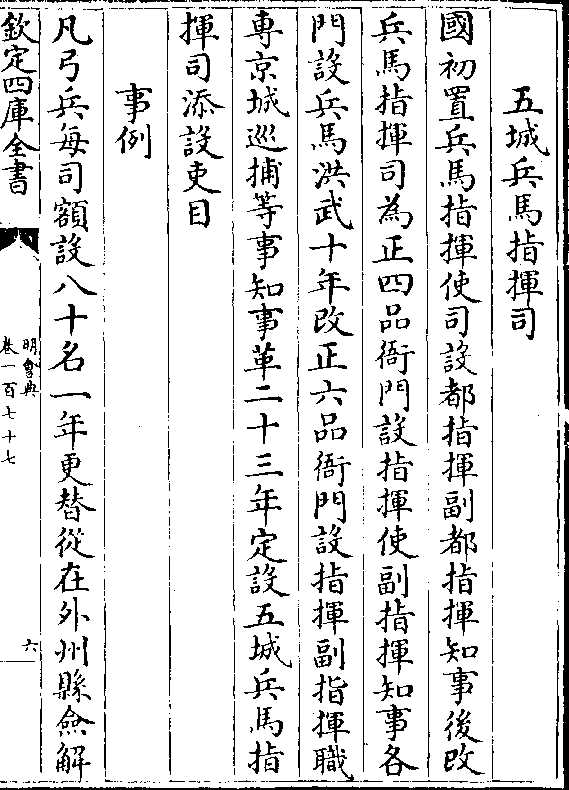 五城兵馬指揮司
國初置兵馬指揮使司設都指揮副都指揮知事後改
兵馬指揮司為正四品衙門設指揮使副指揮知事各
門設兵馬洪武十年改正六品衙門設指揮副指揮職
專京城巡捕等事知事革二十三年定設五城兵馬指
揮司添設吏目
事例
凡弓兵每司額設八十名一年更替從在外州縣僉解
欽定四庫全書
明會典
卷一百七十七
六